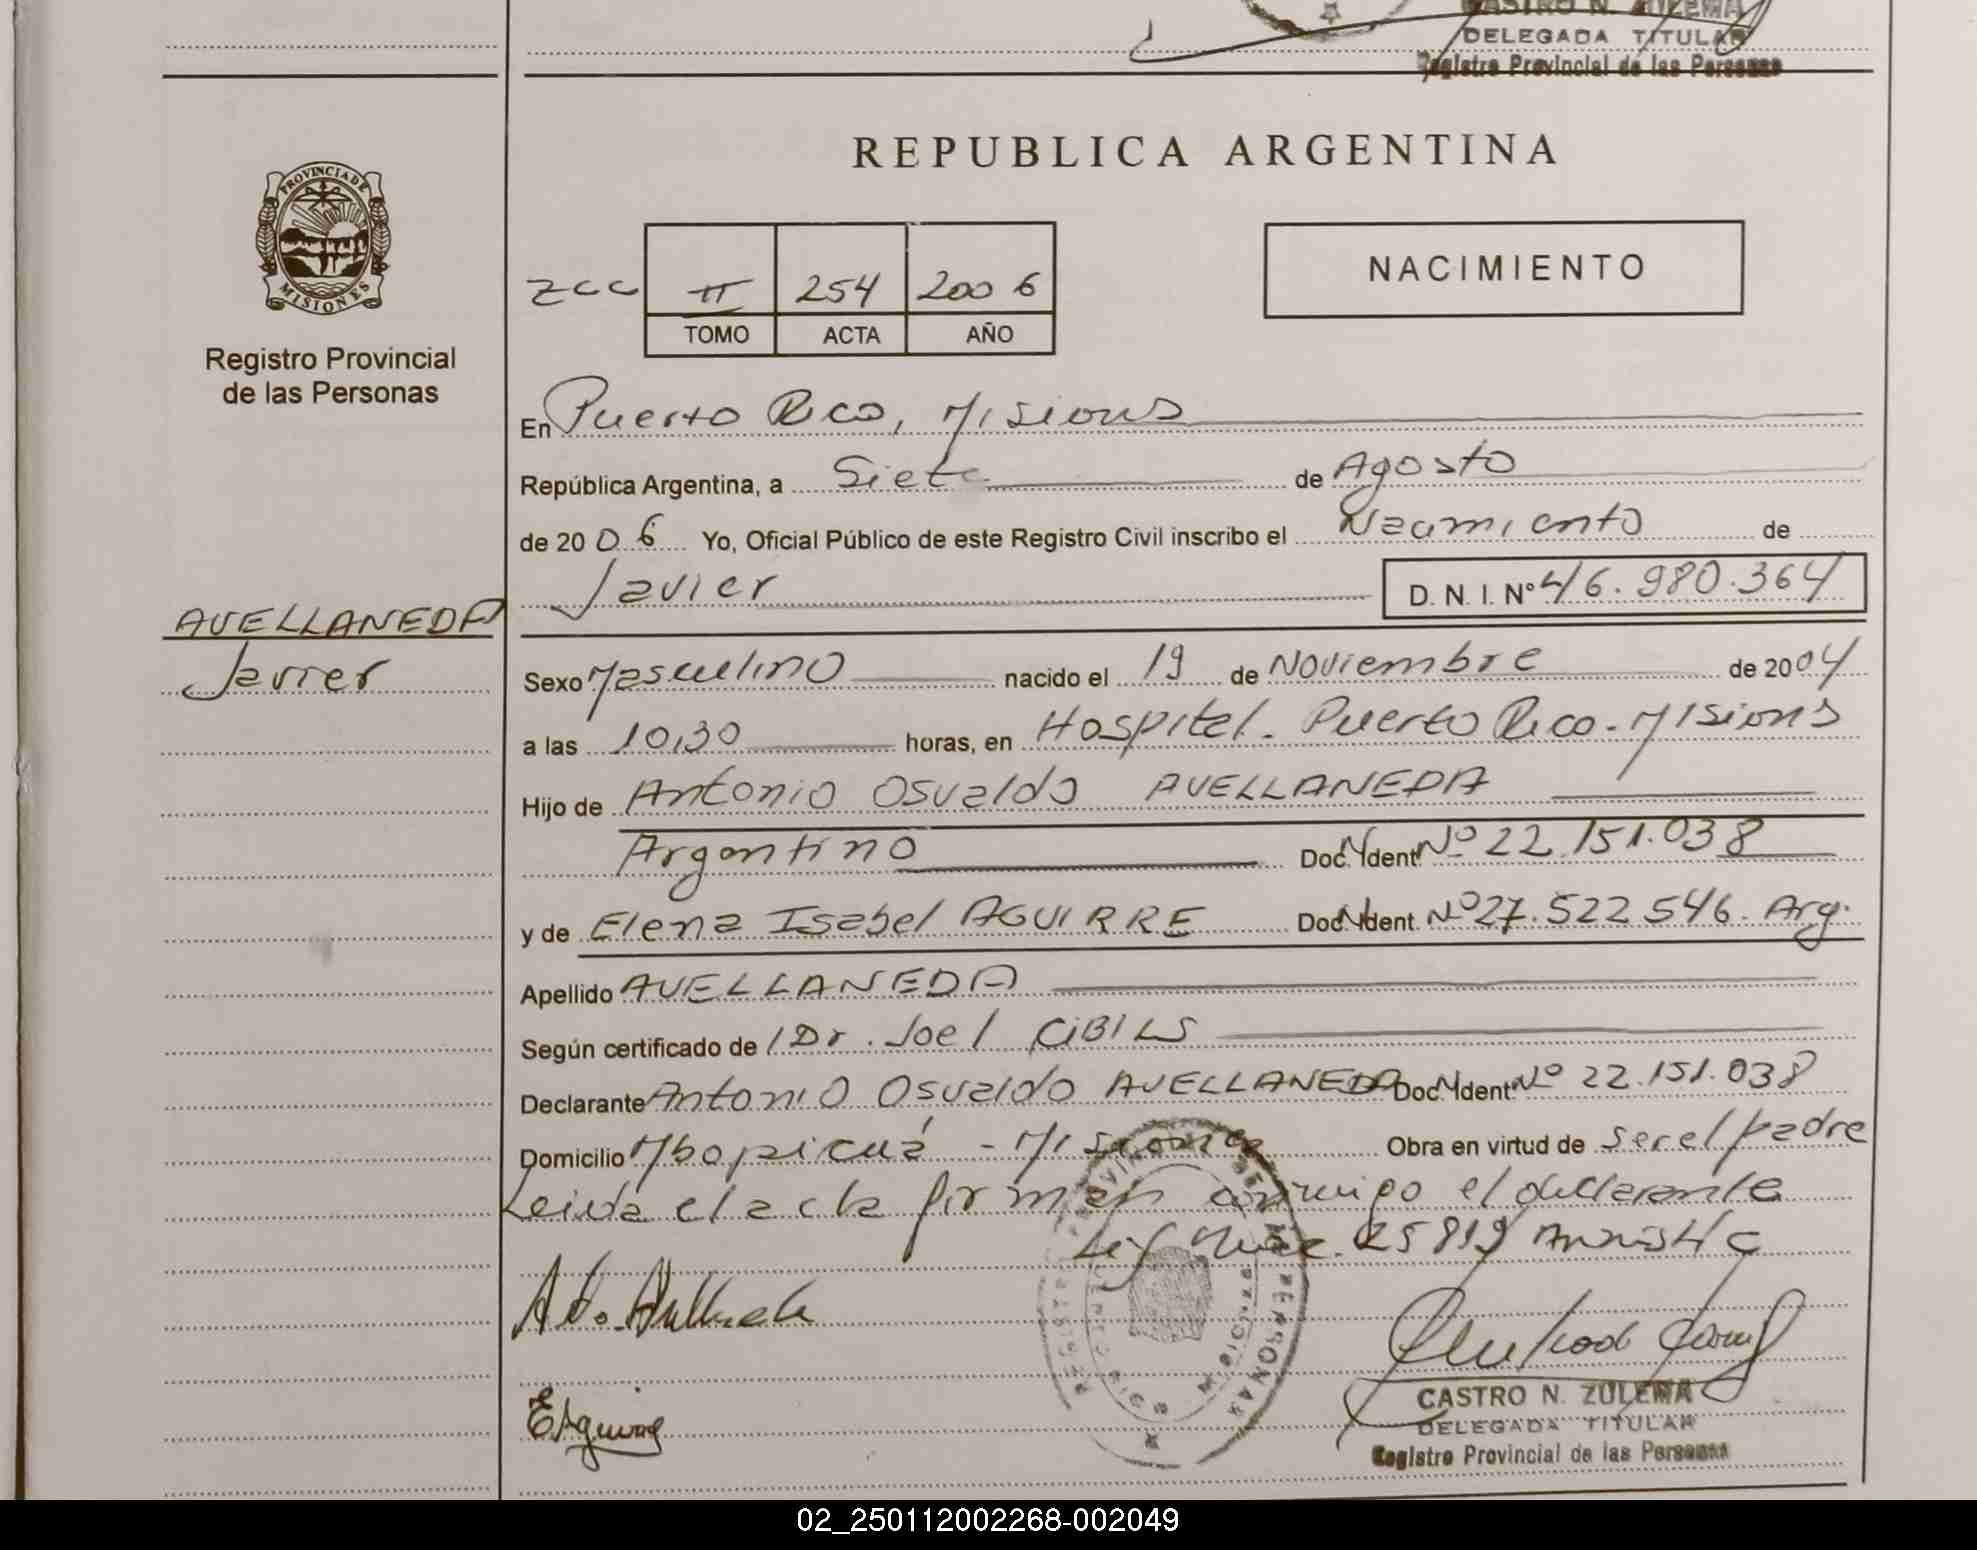 CASTRO N. ZULEMA
DELEGADA TITULAR
Registro Provincial de las Personas
PROVINCIA DE
MISIONES
Registro Provincial
de las Personas
REPUBLICA ARGENTINA
NACIMIENTO
zcc II 254 2006
TOMO ACTA AÑO
En Puerto Rico, Misiones
República Argentina, a Siete de Agosto
de 20 06 Yo, Oficial Público de este Registro Civil inscribo el Nacimiento de
Javier D. N. I. Nº 46.980.364
AVELLANEDA
Javier
Sexo Masculino nacido el 19 de Noviembre de 2004
a las 10,30 horas, en Hospital. Puerto Rico. Misiones
Hijo de Antonio Osvaldo AVELLANEDA
Argentino Doc. Ident. Nº 22.151.038
y de Elena Isabel AGUIRRE Doc. Ident. Nº 27.522.546. Arg.
Apellido AVELLANEDA
Según certificado de Dr. Joel CIBILS
Declarante Antonio Osvaldo AVELLANEDA Doc. Ident. Nº 22.151.038
Domicilio Mbopicuá - Misiones Obra en virtud de ser el padre
Leida el acta firman conmigo el declarante
25819
EAguirre
CASTRO N. ZULEMA
DELEGADA TITULAR
Registro Provincial de las Personas
02_250112002268-002049